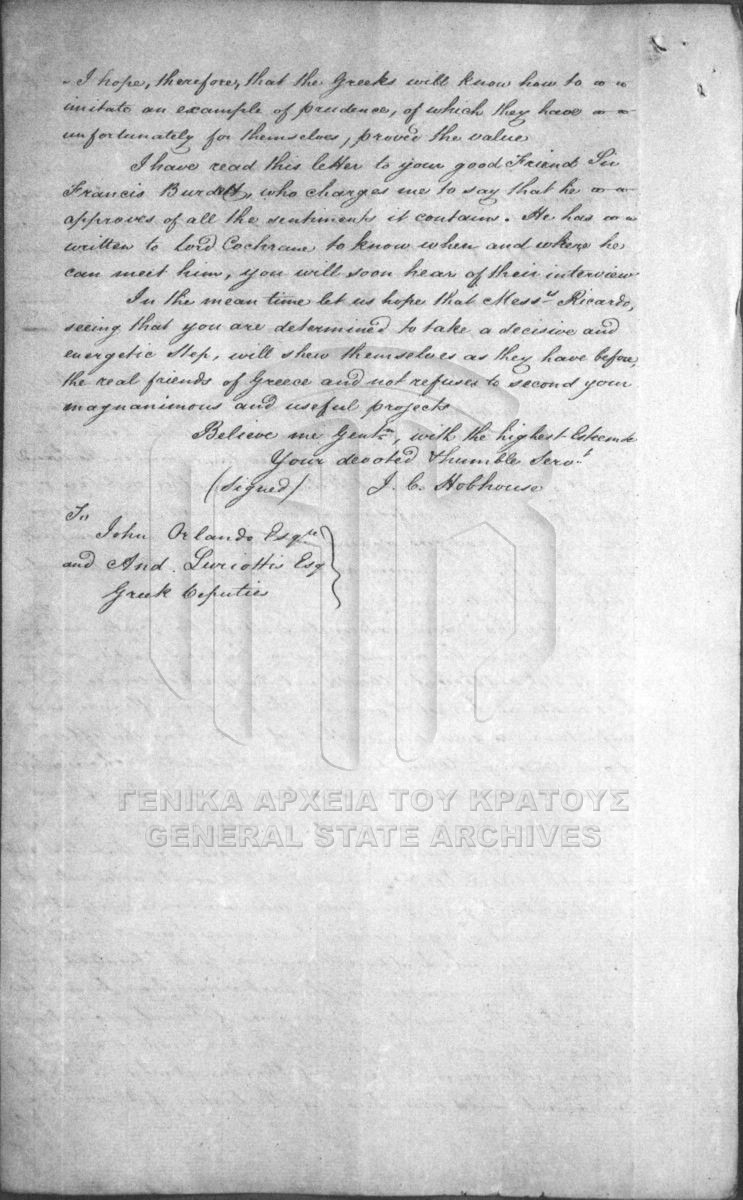 I hope, therefore, that the Greeks will know how to
imitate an example of prudence, of which they have
unfortunately for themselves, prov'd the value
I have read this letter to your good Friend Sir
Francis Burdett, who charges me to say that he
approves of all the sentiments it contains. He has
written to Lord Cochrane to know when and where he
can meet him, you will soon hear of their interview
In the mean time let us hope that Mess.rs Ricardo,
seeing that you are determined to take a decisive and
energetic Step, will shew themselves as they have before,
the real friends of Greece and not refuse to second your
magnanimous and useful projects
Believe me Gentn, with the highest Esteem
Your devoted & humble Serv.t
(signed) J. C. Hobhouse
To
John Orlando Esqre
and And. Luriottis Esq
Greek Deputies
ΓΕΝΙΚΑ ΑΡΧΕΙΑ ΤΟΥ ΚΡΑΤΟΥΣ
GENERAL STATE ARCHIVES